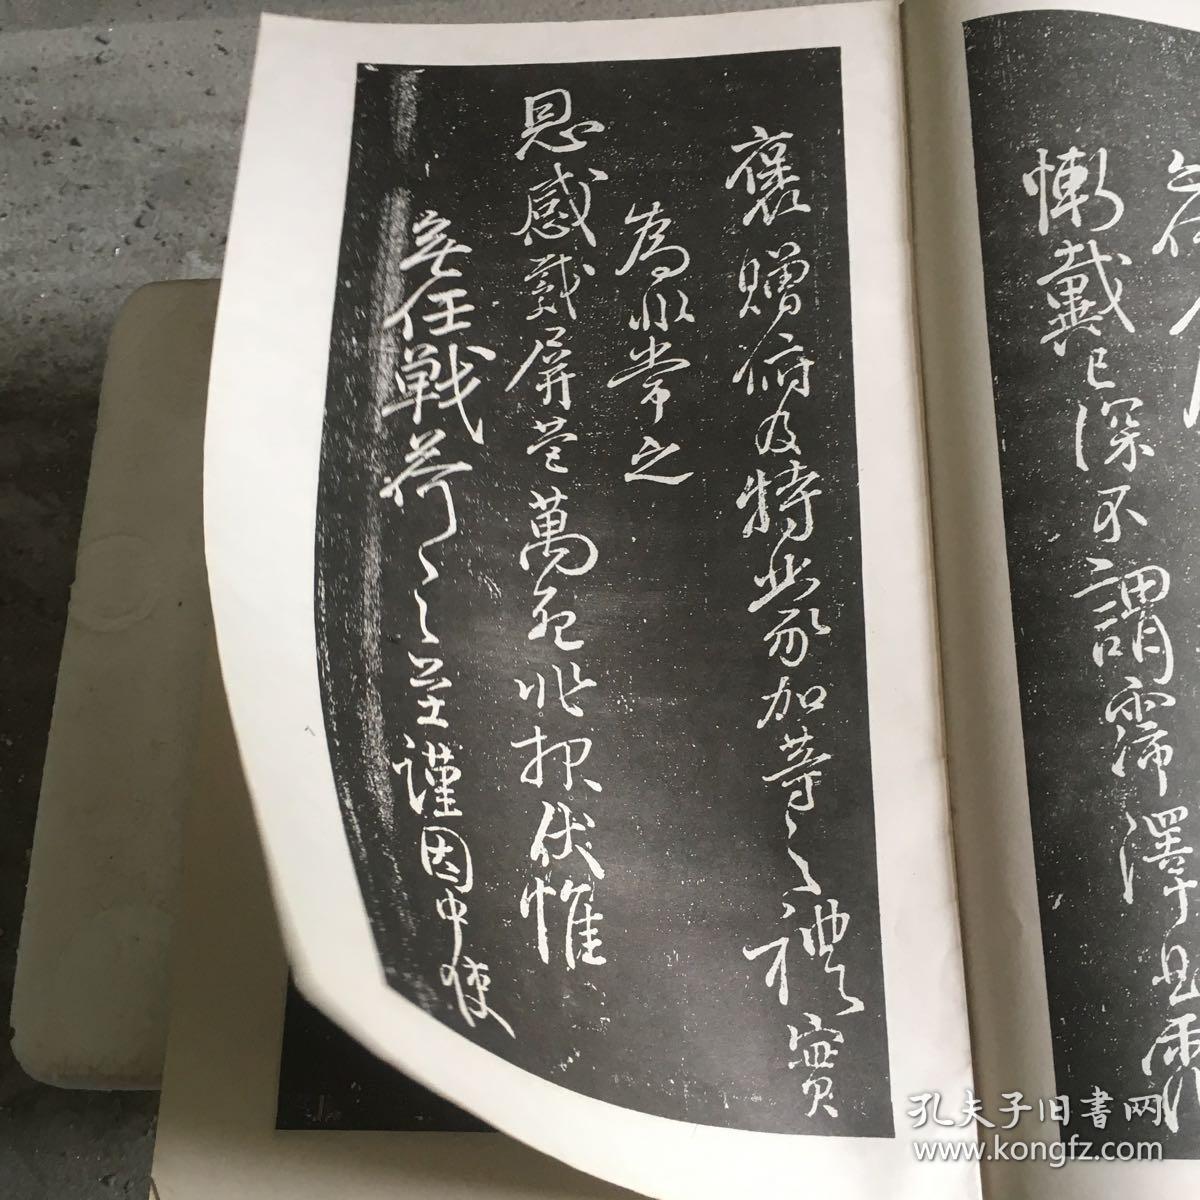 慚戴已深不謂霈澤
褒贈俯及特蒙加等之禮實
為非常之
恩感戴屏營萬死非報伏惟
無任戰荷之至謹因中使
孔夫子旧书网
www.kongfz.com